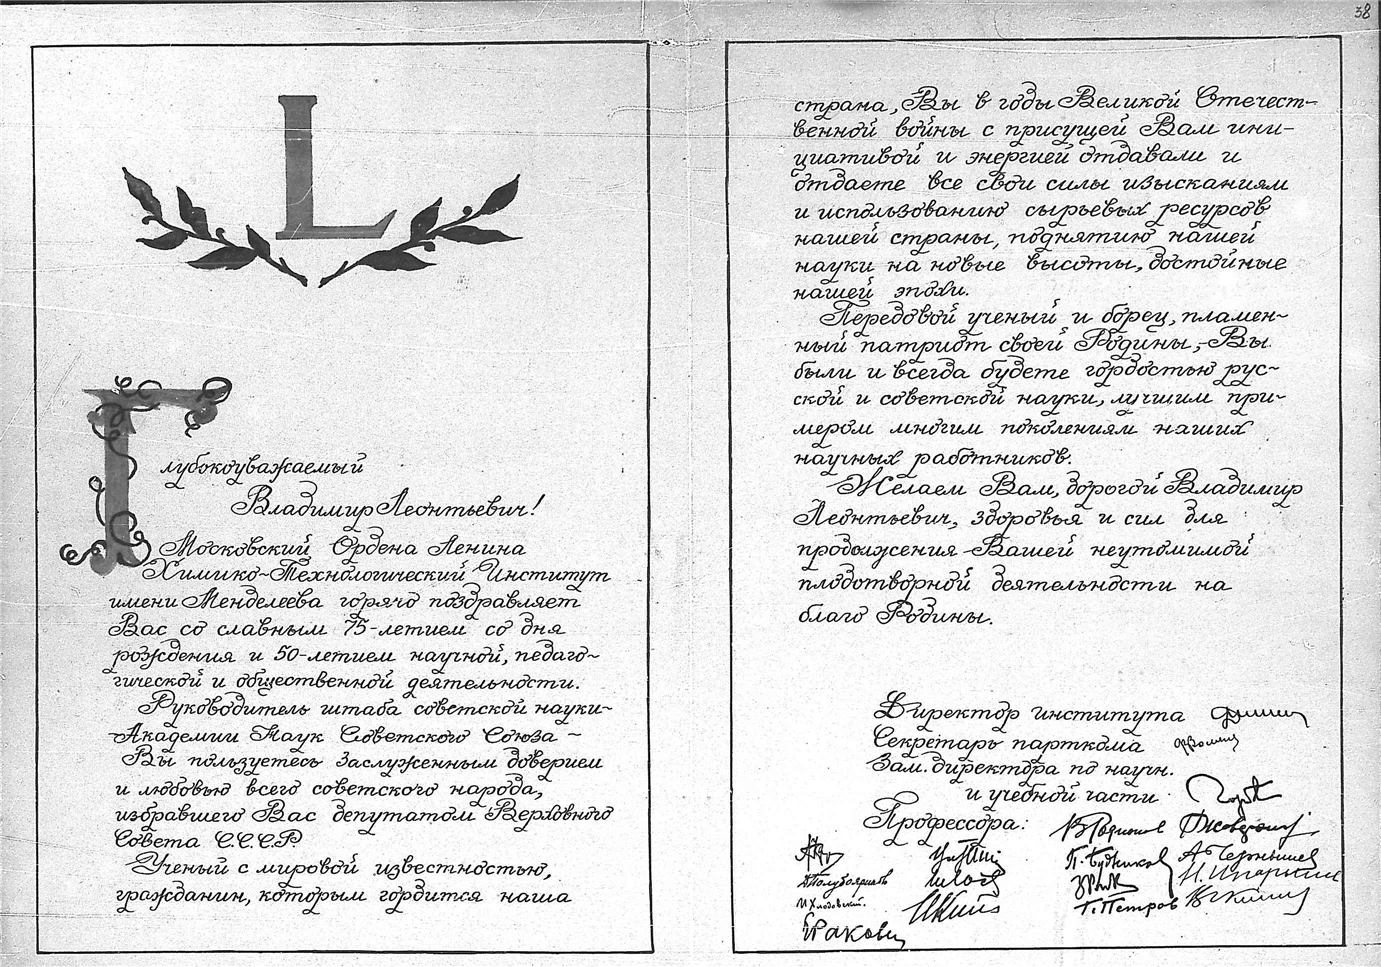 38
L
Глубокоуважаемый
Владимир Леонтьевич!
Московский Ордена Ленина
Химико-Технологический Институт
имени Менделеева горячо поздравляет
Вас со славным 75-летием со дня
рождения и 50-летием научной, педаго-
гической и общественной деятельности.
Руководитель штаба советской науки-
Академии Наук Советского Союза -
Вы пользуетесь заслуженным доверием
и любовью всего советского народа,
избравшего Вас депутатом Верховного
Совета С.С.С.Р
Ученый с мировой известностью,
гражданин, которым гордится наша
страна, Вы в годы Великой Отечест-
венной войны с присущей Вам ини-
циативой и энергией отдавали и
отдаете все свои силы изысканиям
и использованию сырьевых ресурсов
нашей страны, поднятию нашей
науки на новые высоты, достойные
нашей эпохи.
Передовой ученый и борец, пламен-
ный патриот своей Родины,-Вы
были и всегда будете гордостью рус-
ской и советской науки, лучшим при-
мером многим поколениям наших
научных работников.
Желаем Вам, дорогой Владимир
Леонтьевич, здоровья и сил для
продолжения Вашей неутомимой
плодотворной деятельности на
благо Родины.
Директор института
Секретарь парткома
Зам. директора по научн.
и учебной части
Профессора:
В Родионов
П. Будников
А Чернышев
Н. Шпаркин
И Хлодовский.
Г. Петров
И Раков